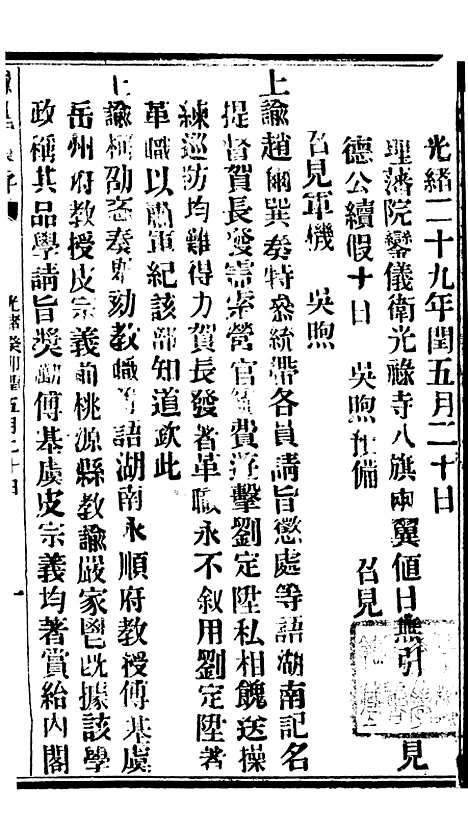 光緒二十九年閏五月二十日
理藩院鑾儀衛光祿寺八旗兩翼值日無引 見
德公續假十日 吳煦預備 召見
召見軍機 吳煦
上諭趙爾巽奏特參統帶各員請旨懲處等語湖南記名
提督賀長發需索營官規費遊擊劉定陞私相餽送操
練巡防均難得力賀長發著革職永不敘用劉定陞著
革職以肅軍紀該部知道欽此
上諭柯劭忞奏舉劾教職等語湖南永順府教授傅基虞
岳州府教授皮宗義前桃源縣教諭嚴家鬯既據該學
政稱其品學請旨獎勵傅基虞皮宗義均著賞給內閣
光緒癸卯閏五月二十日
一